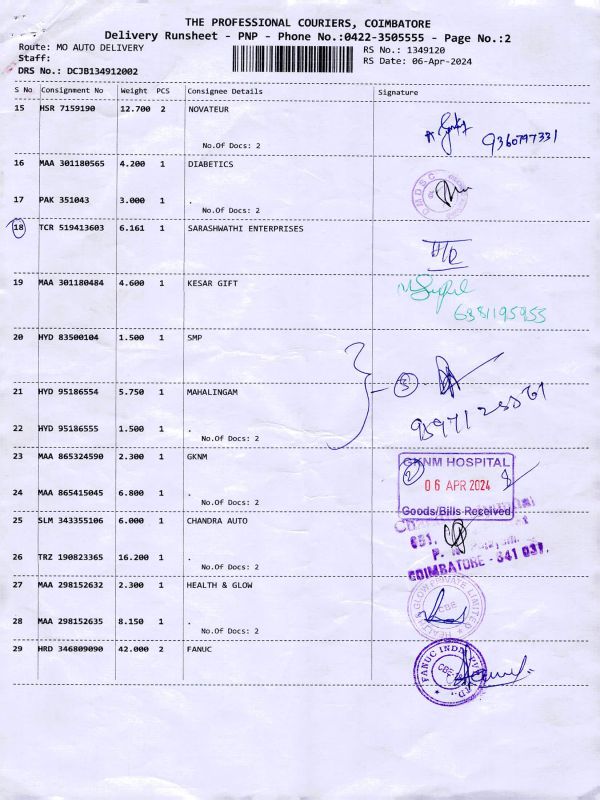 THE PROFESSIONAL COURIERS, COIMBATORE
Delivery Runsheet - PNP - Phone No.:0422-3505555 - Page No.:2
Route: MO AUTO DELIVERY RS No.: 1349120
Staff: RS Date: 06-Apr-2024
DRS No.: DCJB134912002
S No Consignment No Weight PCS Consignee Details Signature
15 HSR 7159190 12.700 2 NOVATEUR
9360797331
No.Of Docs: 2
16 MAA 301180565 4.200 1 DIABETICS
DMDSC
17 PAK 351043 3.000 1 .
No.Of Docs: 2
18 TCR 519413603 6.161 1 SARASHWATHI ENTERPRISES
19 MAA 301180484 4.600 1 KESAR GIFT
6381195955
20 HYD 83500104 1.500 1 SMP
3
21 HYD 95186554 5.750 1 MAHALINGAM
22 HYD 95186555 1.500 1 .
No.Of Docs: 2
23 MAA 865324590 2.300 1 GKNM
GKNM HOSPITAL
2
06 APR 2024
Goods/Bills Received
24 MAA 865415045 6.800 1 .
No.Of Docs: 2
25 SLM 343355106 6.000 1 CHANDRA AUTO
COIMBATORE - 641 031.
26 TRZ 190823365 16.200 1 .
No.Of Docs: 2
27 MAA 298152632 2.300 1 HEALTH & GLOW
HEALTH & GLOW PRIVATE LIMITED
CBE
28 MAA 298152635 8.150 1 .
No.Of Docs: 2
29 HRD 346809090 42.000 2 FANUC
FANUC INDIA
CBE